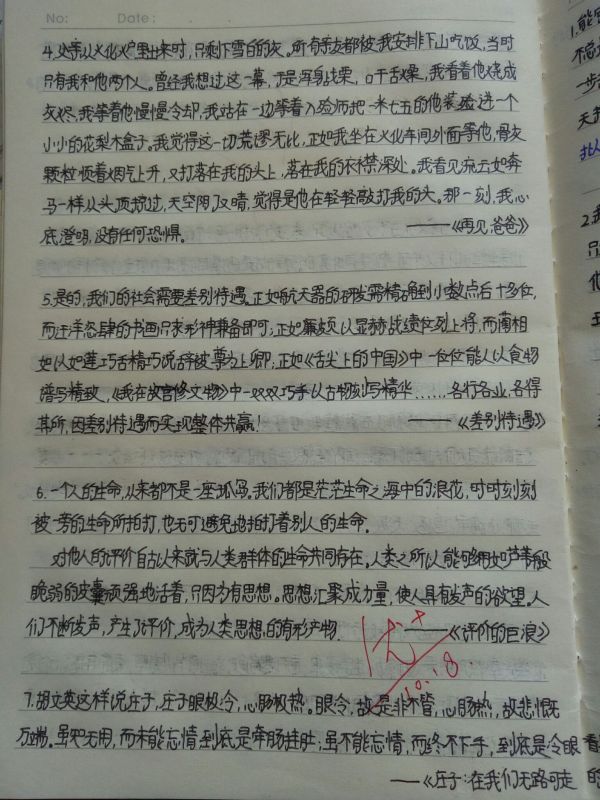 No:
Date:
4.父亲从火化炉里出来时,只剩下雪白的灰。所有亲友都被我安排下山吃饭,当时
只有我和他两个人。曾经我想过这一幕,于是浑身战栗,口干舌燥。我看着他烧成
灰烬,我等着他慢慢冷却,我站在一边等着入殓师把一米七五的他装殓进一个
小小的花梨木盒子。我觉得这一切荒谬无比,正如我坐在火化车间外面等他,骨灰
颗粒顺着烟气上升,又打落在我的头上,落在我的衣襟深处。我看见流云如奔
马一样从头顶掠过,天空阴了又晴,觉得是他在轻轻敲打我的头。那一刻,我心
底澄明,没有任何恐惧。 ——《再见,爸爸》
5.是的,我们的社会需要差别待遇。正如航天器的研发需精确到小数点后十多位,
而汪洋恣肆的书画只求形神兼备即可;正如廉颇以显赫战绩位列上将,而蔺相
如以如莲巧舌精巧说辞被尊为上卿;正如《舌尖上的中国》中一位位能人以食物
谱写精致,《我在故宫修文物》中一双双巧手以古物刻写精华……各行各业,各得
其所,因差别待遇而实现整体共赢! ——《差别待遇》
6.一个人的生命,从来都不是一座孤岛。我们都是茫茫生命之海中的浪花,时时刻刻
被一旁的生命所拍打,也无可避免地拍打着别人的生命。
对他人的评价自古以来就与人类群体的生命共同存在,人类之所以能够拥如芦苇般
脆弱的皮囊顽强地活着,只因为有思想。思想汇聚成力量,使人具有发声的欲望。人
们不断发声,产生了评价,成为人类思想的有形产物. ——《评价的巨浪》
优+
10.18.
7.胡文英这样说庄子,庄子眼极冷,心肠极热。眼冷,故是非不管,心肠热,故悲慨
万端。虽知无用,而未能忘情,到底是牵肠挂肚;虽不能忘情,而终不下手,到底是冷眼看
——《庄子:在我们无路可走的